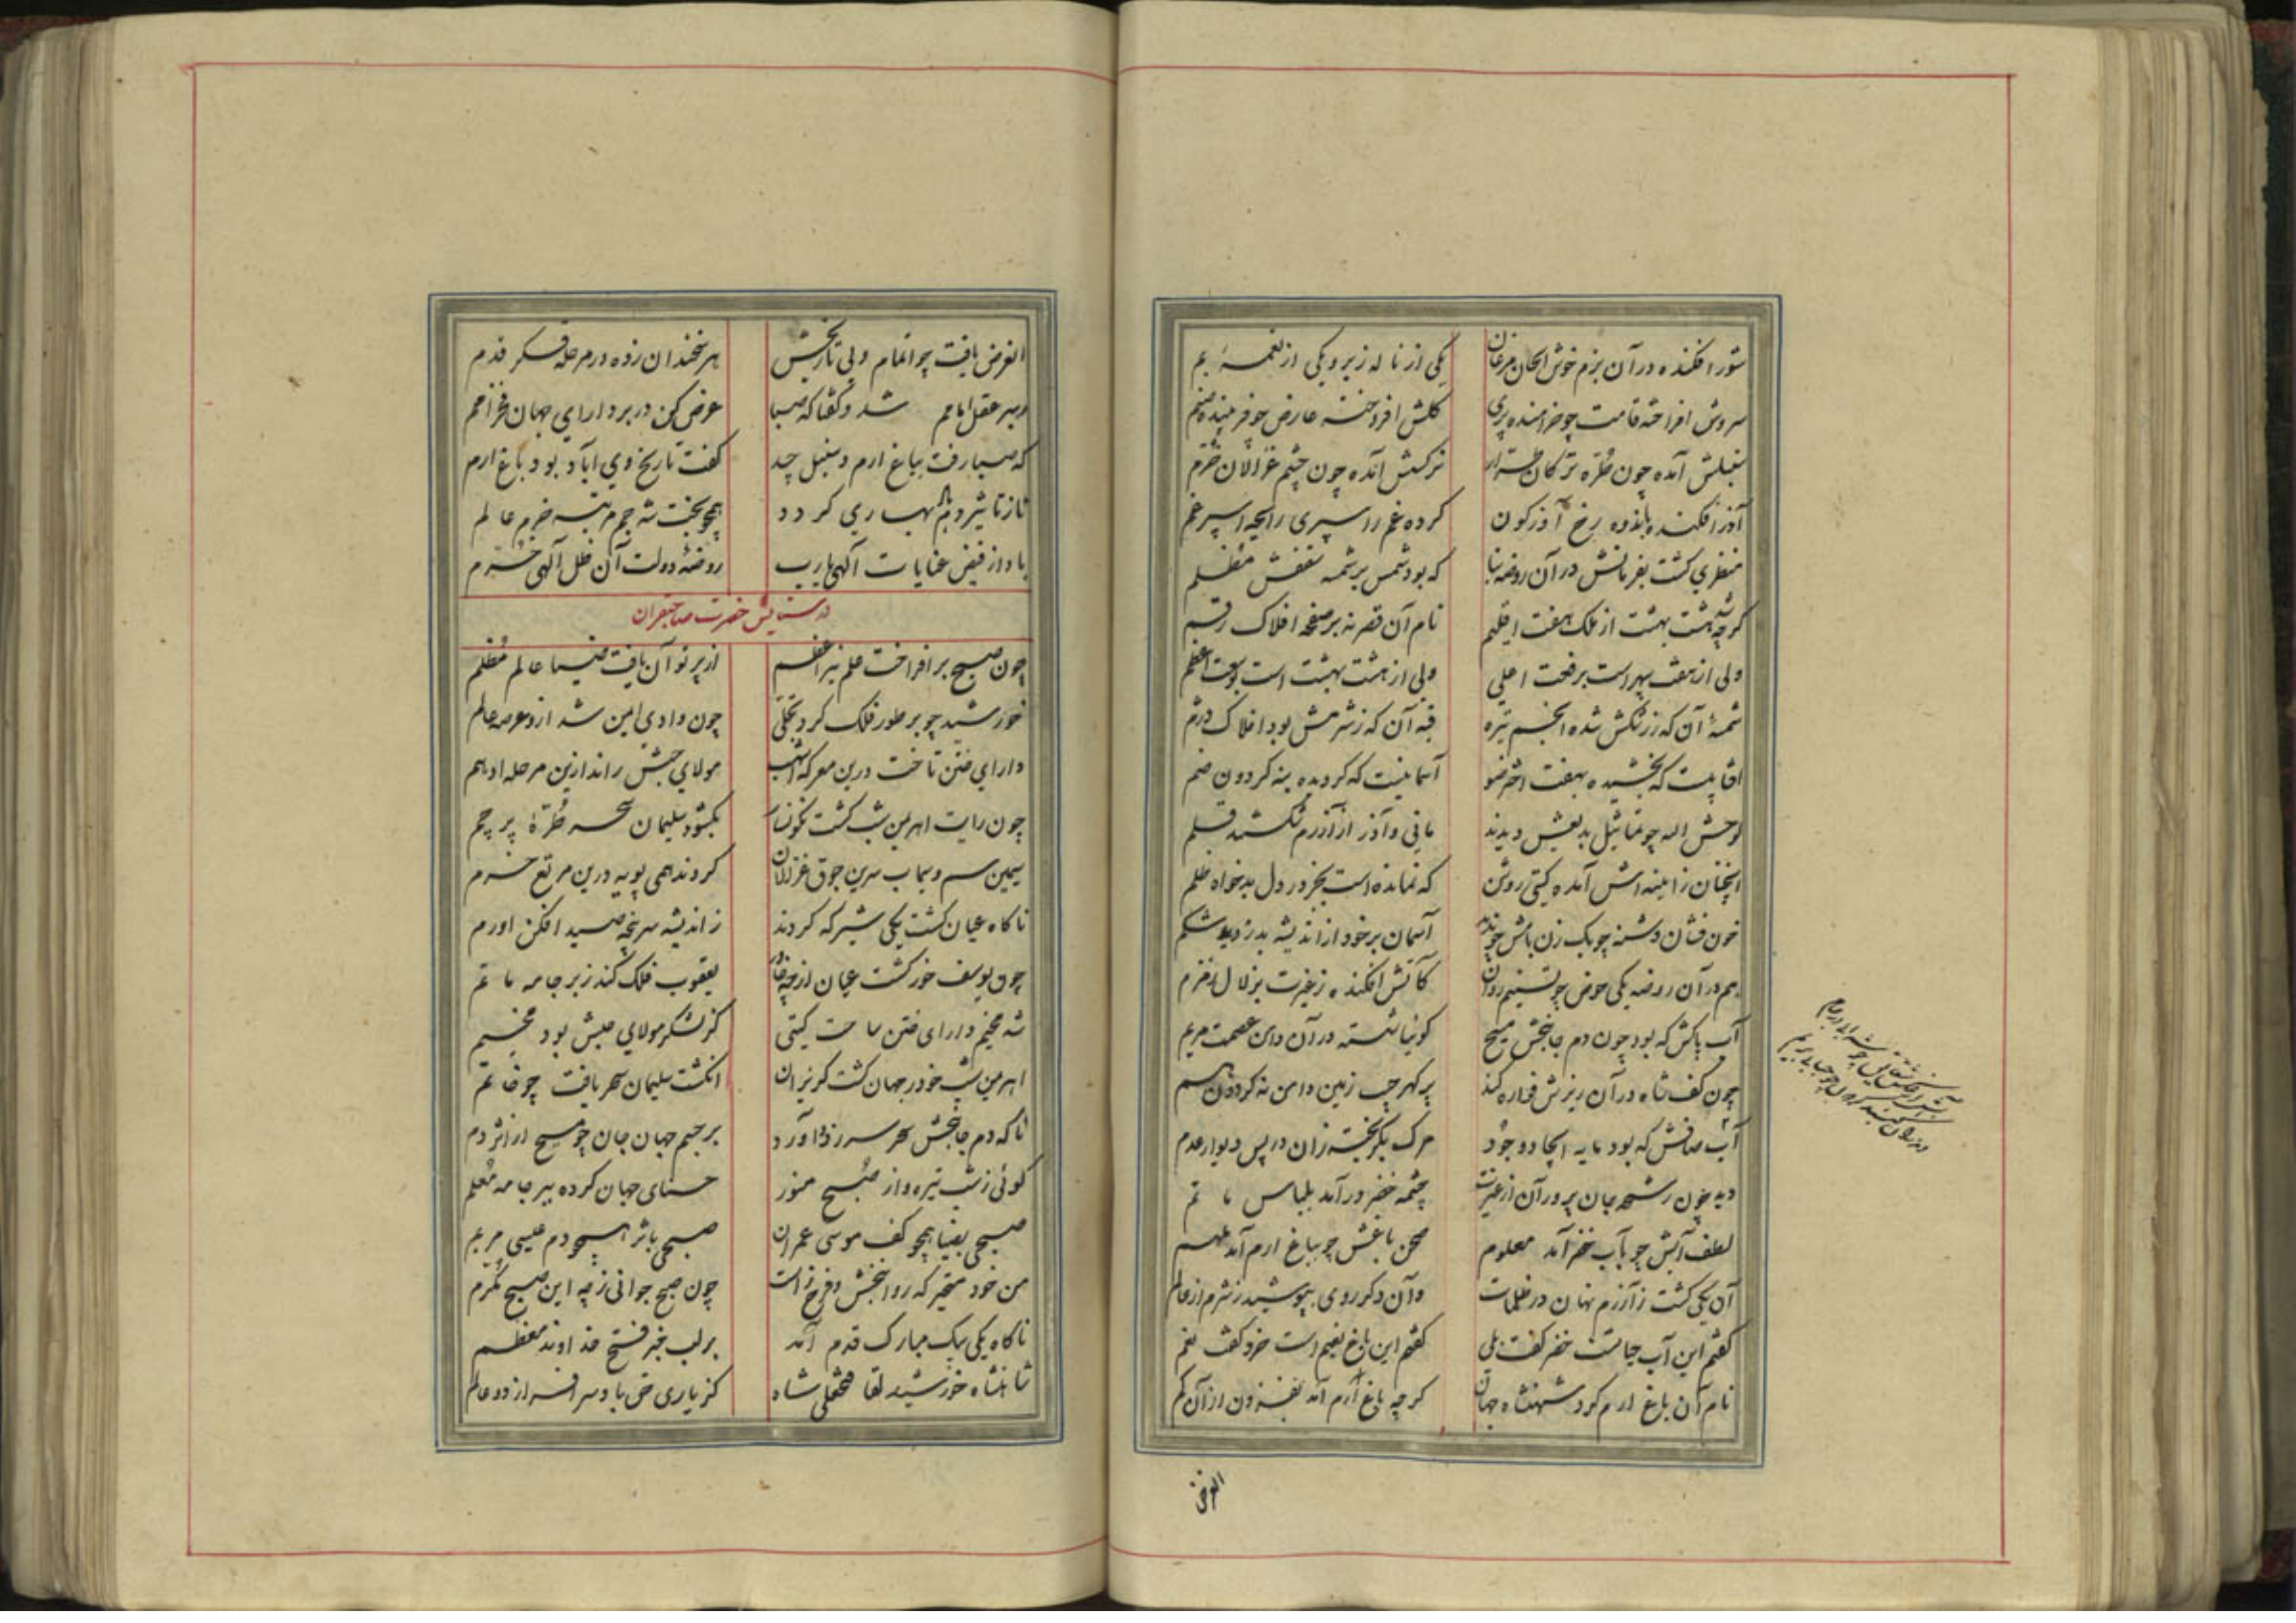 شور افکنده در آن بزم خوش الحان مرغان یکی از ناله زیر و یکی از نغمه بم
سروش افراخته قامت چو خرامنده پری کلش افروخته عارض چو فریبنده صنم
سنبلش آمده چون طره ترکان طرار نرکسش آمده چون چشم غزالان خرم
آذر افکنده باندوه رخ آذرکون کرده غم را سپری رایحه اسپرغم
منظری کشت بفرمانش در آن روضه بنا که بود شمس بر شمسه سقفش مظلم
کرچه هشت بهشت از ملک هفت اقلیم نام آن قصر نه بر صفحه افلاک رقم
ولی از هفت سپهر است برفعت اعلی ولی از هشت بهشت است بوسعت اعظم
شمسهٔ آن که ز رنکش شده انجم تیره قبه آن که ز شرمش بود افلاک درم
افتابیست که بخشیده بهفت اختر ضو آسمانیست که کردیده به نه کردون ضم
لوحش الله چو تماثیل بدیعش دیدند مانی و آذر از آزرم شکستند قلم
انچنان ز اینه اش آمده کیتی روشن که نمانده است بجز در دل بدخواه ظلم
خون فشان دشنه چو یک زن بامش چو آسمان بر خود از اندیشه بدزدید شکم
هم در آن روضه یکی حوض چو تسنیم روان کآتش افکنده ز غیرت بزلال زمزم
آب پاکش که بود چون دم جانبخش مسیح کوئیا شسته در آن دامن عصمت مریم
چون کف شاه در آن ریزش فواره کند پر کهر جیب زمین دامن نه کردون هم
آب صافش که بود مایه ایجاد وجود مرک بکریخته زان در پس دیوار عدم
دید چون رشحه جان پرور آن از غیرت چشمه خضر در آمد بلباس ماتم
لطف آبش چو بآب خضر آمد معلوم صحن باغش چو بباغ ارم آمد ملهم
آن یکی کشت ز آزرم نهان در ظلمات وآن دکر روی بپوشید ز شرم از عالم
کفتم این آب حیاتست خضر کفت بلی کفتم این باغ نعیم است خرد کفت نعم
نام آن باغ ارم کرد شهنشاه جهان کرچه باغ ارم آمد بفزون از آن کم
الغرض
الغرض یافت چو اتمام ولی تاریخش هر سخندان زده در مرحله فکر قدم
شد و کفتا که صبا عرض کن در بر دارای جهان فخر امم
که صبا رفت بباغ ارم و سنبل چید کفت تاریخ وی آباد بود باغ ارم
تا ز تاثیر دم بهاری کردد همچو بخت شه جم مرتبه خرم عالم
باد از فیض عنایات آلهی یارب روضهٔ دولت آن ظل آلهی خرم
در ستایش حضرت صاحبقران
چون صبح بر افراخت علم نیر اعظم از پرتو آن یافت ضیا عالم مظلم
خورشید چو بر طور فلک کرد تجلی چون وادی ایمن شد ازو عرصه عالم
دارای ختن تاخت درین معرکه اشهب مولای حبش راند ازین مرحله ادهم
چون رایت اهرمن شب کشت نکونسار بکشود سلیمان سحر طرهٔ پرچم
سیمین سم و سیماب سرین جوق غزالان کردند همی پویه درین مرتع خرم
ناکاه عیان کشت یکی شیر که کردند ز اندیشه سرپنجه صید افکن او رم
چون یوسف خور کشت عیان از یعقوب فلک کند ز بر جامه ماتم
شد مخیم دارای ختن ساحت کیتی کز لشکر مولای حبش بود مخیم
اهرمن شب خود ز جهان کشت کریزان انکشت سلیمان سحر یافت چو خاتم
تا که دم جانبخش سحر سر زد و آورد بر جسم جهان جان چو مسیح از اثر دم
کوئی ز شب تیره و از صبح منور حسنای جهان کرده ببر جامه معلم
صبحی بضیا همچو کف موسی عمران صبحی باثر همچو دم عیسی مریم
من خود متحیر که روانبخش و فرح زاست چون صبح جوانی ز چه این صبح مکرم
ناکاه یکی پیک مبارک قدم آمد بر لب خبر فتح خداوند معظم
شاهنشاه خورشید لقا فتحعلی شاه کز یاری حق باد سر افسر از دو عالم